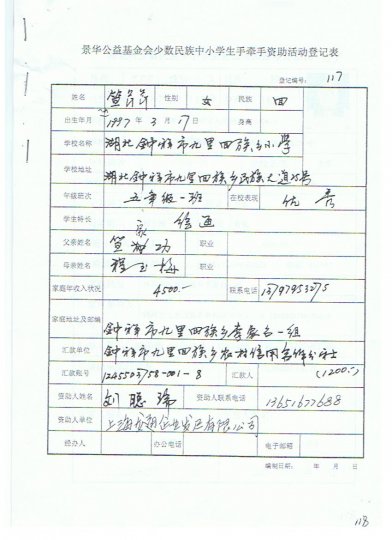 景华公益基金会少数民族中小学生手牵手资助活动登记表
登记编号: 117
姓名 性别 女 民族 回
出生年月 1997年3月17日 身高
学校名称 湖北钟祥市九里回族乡小学
学校地址 湖北钟祥市九里回族乡民族大道25号
年级班次 五年级一班 在校表现 优秀
学生特长 绘画
父亲姓名 职业
母亲姓名 程玉梅 职业
家庭年收入状况 4500.- 联系电话
家庭地址及邮编 钟祥市九里回族乡 一组
汇款单位 钟祥市九里回族乡农村信用合作分社
汇款账号 汇款人 (1200.-)
资助人姓名 刘 资助人联系电话 13651677688
资助人单位 上海 企业发展有限公司
经办人 办公电话 电子邮箱
编制日期: 年 月 日
118